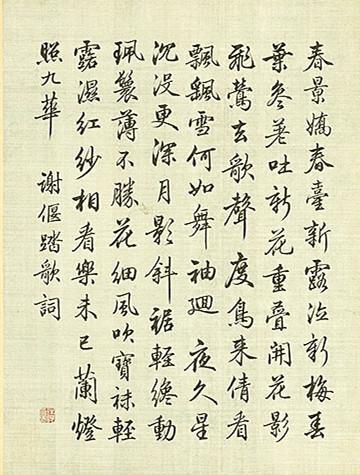 春景嬌春臺新露泣新梅春
葉參差吐新花重疊開花影
飛鶯去歌聲度鳥來倩看
飄颻雪何如舞袖迴夜久星
沉没更深月影斜裾輕纔動
珮鬟薄不勝花細風吹寶袜輕
露濕紅紗相看樂未已蘭燈
照九華 謝偃踏歌詞